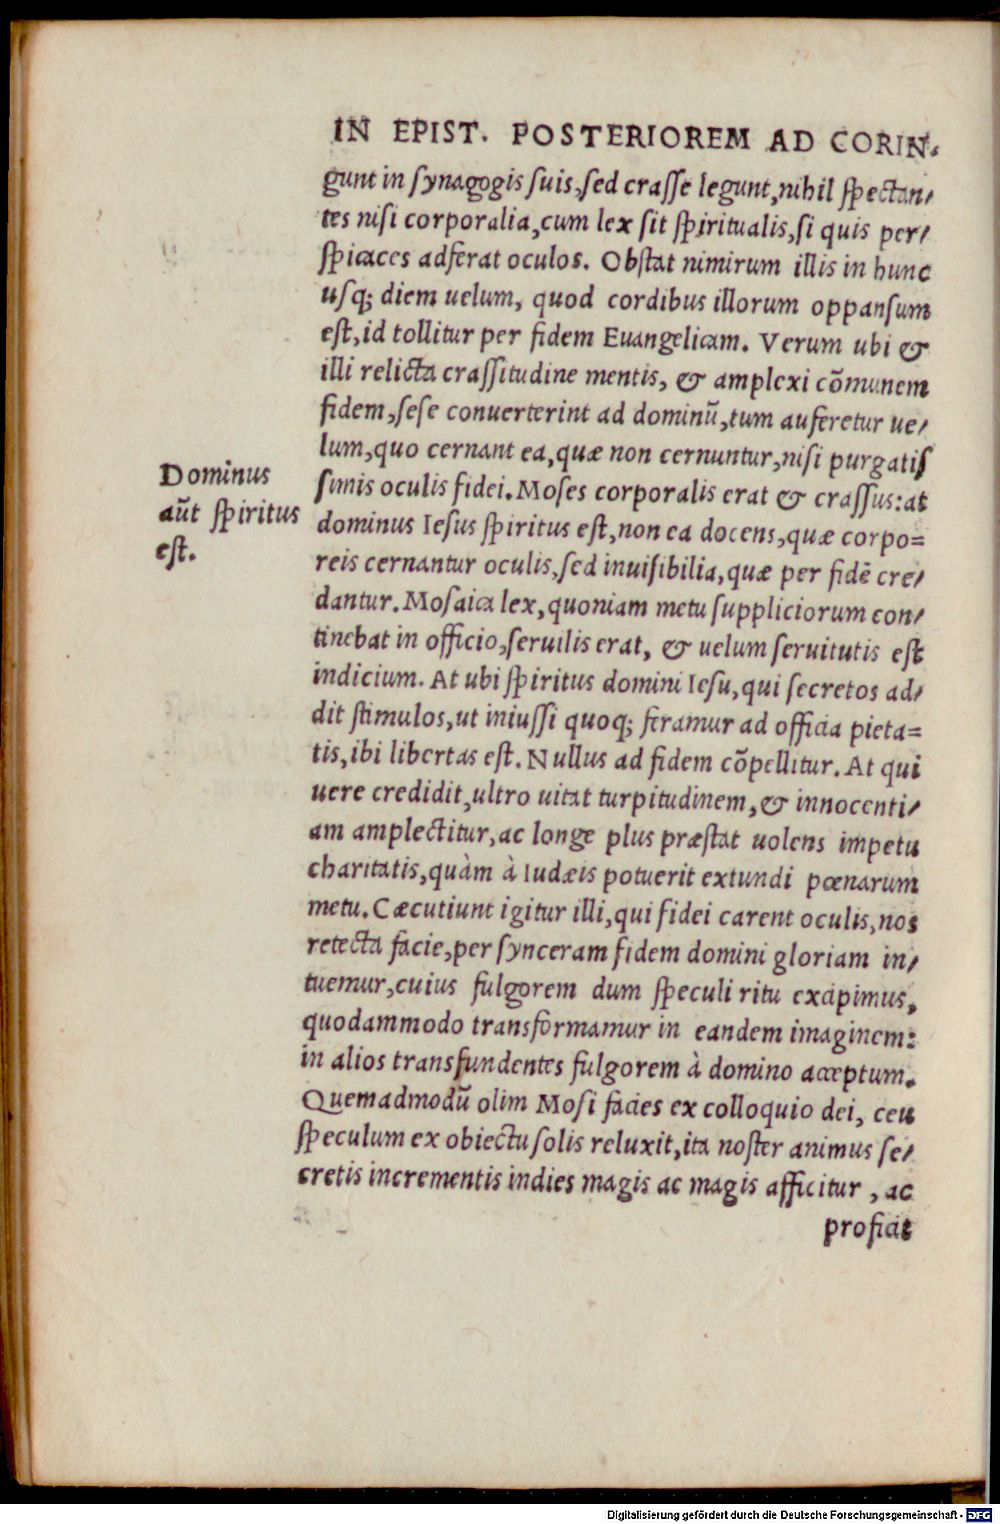 IN EPIST. POSTERIOREM AD CORIN.
gunt in ſynagogis ſuis, ſed craſſe legunt, nihil ſpectan/
tes niſi corporalia, cum lex ſit ſpiritualis, ſi quis per/
ſpicaces adferat oculos. Obſtat nimirum illis in hunc
uſq; diem uelum, quod cordibus illorum oppanſum
eſt, id tollitur per fidem Euangelicam. Verum ubi &
illi relicta craſſitudine mentis, & amplexi cõmunem
fidem, ſeſe conuerterint ad dominũ, tum auferetur ue/
lum, quo cernant ea, quæ non cernuntur, niſi purgatiſ
ſimis oculis fidei. Moſes corporalis erat & craſſus: at
Dominus
aũt ſpiritus
eſt.
dominus Ieſus ſpiritus eſt, non ea docens, quæ corpo=
reis cernantur oculis, ſed inuiſibilia, quæ per fidẽ cre/
dantur. Moſaica lex, quoniam metu ſuppliciorum con/
tinebat in officio, ſeruilis erat, & uelum ſeruitutis eſt
indicium. At ubi ſpiritus domini Ieſu, qui ſecretos ad/
dit ſtimulos, ut iniuſſi quoq; feramur ad officia pieta=
tis, ibi libertas eſt. Nullus ad fidem cõpellitur. At qui
uere credidit, ultro uitat turpitudinem, & innocenti/
am amplectitur, ac longe plus præſtat uolens impetu
charitatis, quàm à Iudæis potuerit extundi pœnarum
metu. Cæcutiunt igitur illi, qui fidei carent oculis, nos
retecta facie, per ſynceram fidem domini gloriam in/
tuemur, cuius fulgorem dum ſpeculi ritu excipimus,
quodammodo transformamur in eandem imaginem:
in alios transfundentes fulgorem à domino acceptum.
Quemadmodũ olim Moſi facies ex colloquio dei, ceu
ſpeculum ex obiectu ſolis reluxit, ita noſter animus ſe/
cretis incrementis indies magis ac magis afficitur, ac
proficit
Digitalisierung gefördert durch die Deutsche Forschungsgemeinschaft - DFG